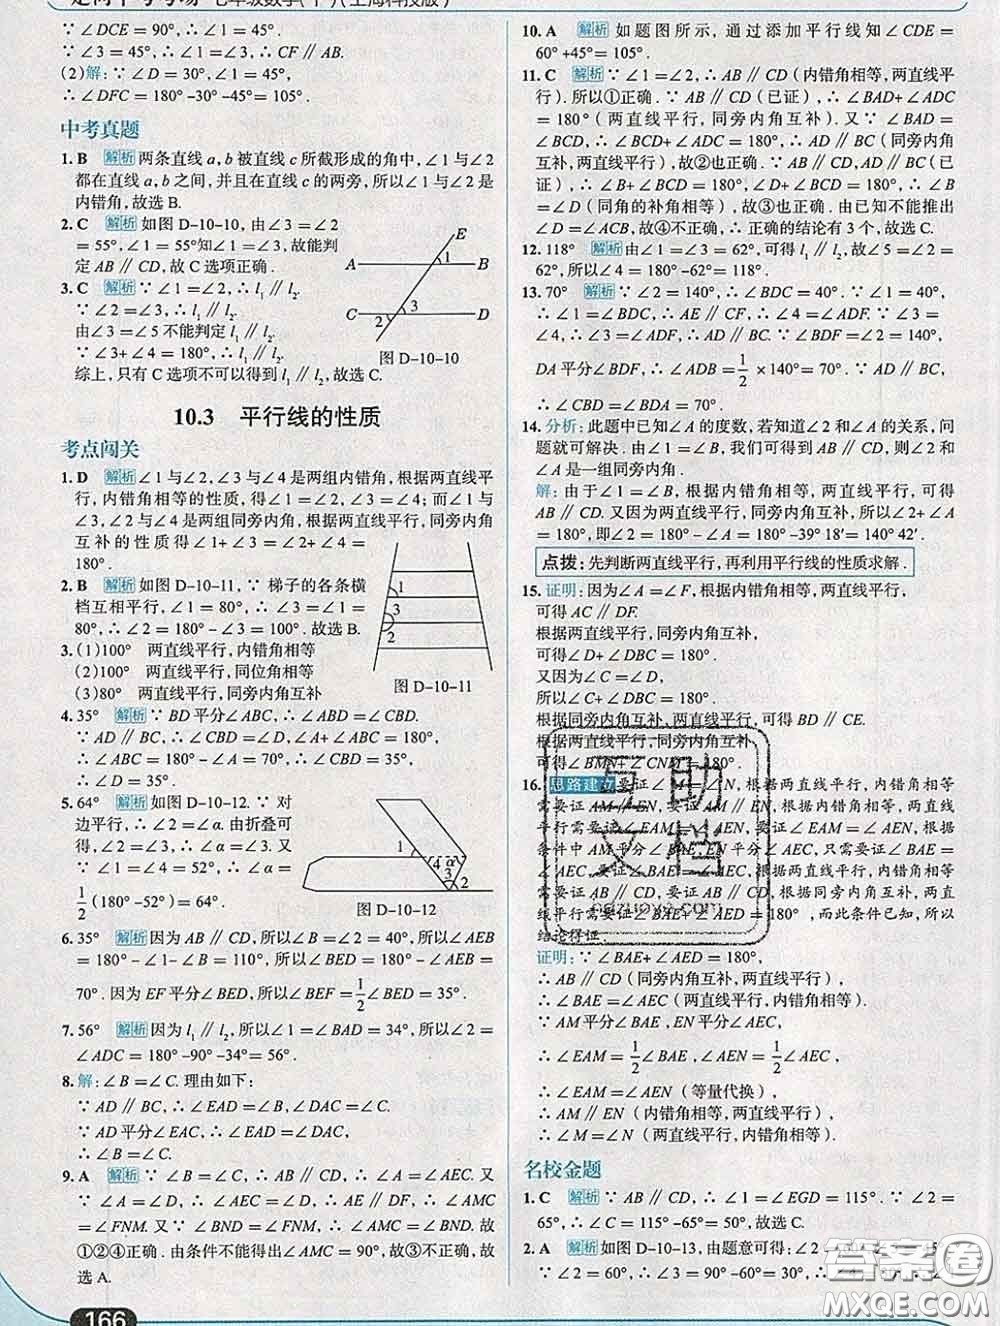 走向中考考场 七年级数学(下)(上海科技版)
∵∠DCE = 90°, ∴∠1 = 45°.
∵∠3 = 45°, ∴∠1 = ∠3, ∴CF∥AB.
(2)解: ∵∠D = 30°, ∠1 = 45°,
∴∠DFC = 180° -30° -45° = 105°.
中考真题
1. B 解析 两条直线 a, b 被直线 c 所截形成的角中, ∠1 与∠2
都在直线 a, b 之间, 并且在直线 c 的两旁, 所以∠1 与∠2 是
内错角, 故选 B.
2. C 解析 如图 D-10-10, 由∠3 = ∠2
= 55°, ∠1 = 55°知∠1 = ∠3, 故能判
定 AB∥CD, 故 C 选项正确.
3. C 解析 ∵∠1 = ∠2, ∴l₁∥l₂.
∵∠2 = ∠3, ∴l₁∥l₂.
由∠3 = ∠5 不能判定 l₁∥l₂.
∵∠3+∠4 = 180°, ∴l₁∥l₂.
综上, 只有 C 选项不可以得到 l₁∥l₂, 故选 C.
E
A 1 B
C 3 D
2
图 D-10-10
10.3 平行线的性质
考点闯关
1. D 解析 ∠1 与∠2, ∠3 与∠4 是两组内错角, 根据两直线平
行, 内错角相等的性质, 得∠1 = ∠2, ∠3 = ∠4; 而∠1 与
∠3, ∠2 与∠4 是两组同旁内角, 根据两直线平行, 同旁内角
互补的性质得∠1+∠3 = 180°, ∠2+∠4 =
180°.
2. B 解析 如图 D-10-11, ∵梯子的各条横
档互相平行, ∠1 = 80°, ∴∠3 = ∠1 =
80°, ∴∠2 = 180° -∠3 = 100°. 故选 B.
1
3
2
图 D-10-11
3. (1)100° 两直线平行, 内错角相等
(2)100° 两直线平行, 同位角相等
(3)80° 两直线平行, 同旁内角互补
4. 35° 解析 ∵BD 平分∠ABC, ∴∠ABD = ∠CBD.
∵AD∥BC, ∴∠D = ∠CBD, ∠A+∠ABC = 180°,
∴∠ABC = 180° -∠A = 70°, ∴∠CBD = 35°,
∴∠D = 35°.
5. 64° 解析 如图 D-10-12. ∵对
边平行, ∴∠2 = ∠α. 由折叠可
得, ∠2 = ∠3, ∴∠α = ∠3.
又∵∠1 = ∠4 = 52°, ∴∠α =
1/2(180° -52°) = 64°.
1 4 α
3 2
图 D-10-12
6. 35° 解析 因为 AB∥CD, 所以∠B = ∠2 = 40°, 所以∠AEB
= 180° -∠1-∠B = 110°, 所以∠BED = 180° -∠AEB =
70°. 因为 EF 平分∠BED, 所以∠BEF = 1/2∠BED = 35°.
7. 56° 解析 因为 l₁∥l₂, 所以∠1 = ∠BAD = 34°, 所以∠2 =
∠ADC = 180° -90° -34° = 56°.
8. 解: ∠B = ∠C. 理由如下:
∵AD∥BC, ∴∠EAD = ∠B, ∠DAC = ∠C.
∵AD 平分∠EAC, ∴∠EAD = ∠DAC,
∴∠B = ∠C.
9. A 解析 ∵∠B = ∠C, ∴AB∥CD, ∴∠A = ∠AEC. 又
∵∠A = ∠D, ∴∠AEC = ∠D, ∴AE∥DF, ∴∠AMC
= ∠FNM. 又∵∠BND = ∠FNM, ∴∠AMC = ∠BND, 故
①②④正确. 由条件不能得出∠AMC = 90°, 故③不正确, 故
选 A.
166
10. A 解析 如题图所示, 通过添加平行线知∠CDE =
60° +45° = 105°.
11. C 解析 ∵∠1 = ∠2, ∴AB∥CD(内错角相等, 两直线平
行). 所以①正确. ∵AB∥CD(已证), ∴∠BAD+∠ADC
= 180°(两直线平行, 同旁内角互补). 又∵∠BAD =
∠BCD, ∴∠BCD+∠ADC = 180°, ∴AD∥BC(同旁内角
互补, 两直线平行), 故②也正确. ∵AB∥CD, AD∥BC(已
证), ∴∠B+∠BCD = 180°, ∠D+∠BCD = 180°, ∴∠B
= ∠D(同角的补角相等), 故③也正确. 由已知不能推出
∠D = ∠ACB, 故④不正确, ∴正确的结论有 3 个, 故选 C.
12. 118° 解析 由∠1 = ∠3 = 62°, 可得 l₁∥l₂, 故∠5 = ∠2 =
62°, 所以∠4 = 180° -62° = 118°.
13. 70° 解析 ∵∠2 = 140°, ∴∠BDC = 40°. ∵∠1 = 40°,
∴∠1 = ∠BDC, ∴AE∥CF, ∴∠4 = ∠ADF. ∵∠3 =
∠4, ∴∠3 = ∠ADF, ∴AD∥BC. ∵∠BDF = ∠2 = 140°,
DA 平分∠BDF, ∴∠ADB = 1/2×140° = 70°. ∵AD∥BC,
∴∠CBD = ∠ADB = 70°.
14. 分析: 此题中已知∠A 的度数, 若知道∠2 和∠A 的关系, 问
题就可解决. 由∠1 = ∠B, 我们可得 AD∥BC, 则∠2 和∠A
是一组同旁内角.
解: 由于∠1 = ∠B, 根据内错角相等, 两直线平行, 可得
AD∥BC. 又因为两直线平行, 同旁内角互补, 所以∠2+∠A
= 180°, 即∠2 = 180° -∠A = 180° -39°18′ = 140°42′.
点拨: 先判断两直线平行, 再利用平行线的性质求解.
15. 证明: 因为∠A = ∠F, 根据内错角相等, 两直线平行,
可得 AC∥DF.
根据两直线平行, 同旁内角互补,
可得∠D+∠DBC = 180°.
又因为∠C = ∠D,
所以∠C+∠DBC = 180°.
根据同旁内角互补, 两直线平行, 可得 BD∥CE.
根据两直线平行, 同旁内角互补
可得∠BMN+∠CNM = 180°.
16. 思路建立 要证∠M = ∠N, 根据两直线平行, 内错角相等
需要证 AM∥EN, 要证 AM∥EN, 根据内错角相等, 两直线
平行需要证∠EAM = ∠AEN, 要证∠EAM = ∠AEN, 根据
条件中 AM 平分∠BAE, EN 平分∠AEC, 只需要证∠BAE =
∠AEC, 要证∠BAE = ∠AEC, 根据两直线平行, 内错角相等
需要证 AB∥CD, 要证 AB∥CD, 根据同旁内角互补, 两直线
平行需要证∠BAE+∠AED = 180°, 而此条件已知, 所以
结论得证.
证明: ∵∠BAE+∠AED = 180°,
∴AB∥CD(同旁内角互补, 两直线平行),
∴∠BAE = ∠AEC(两直线平行, 内错角相等).
∵AM 平分∠BAE, EN 平分∠AEC,
∴∠EAM = 1/2∠BAE, ∠AEN = 1/2∠AEC,
∴∠EAM = ∠AEN(等量代换),
∴AM∥EN(内错角相等, 两直线平行),
∴∠M = ∠N(两直线平行, 内错角相等).
名校金题
1. C 解析 ∵AB∥CD, ∴∠1 = ∠EGD = 115°. ∵∠2 =
65°, ∴∠C = 115° -65° = 50°, 故选 C.
2. A 解析 如图 D-10-13, 由题意可得:
∠2 = 60°, ∴∠3 = ∠2 = 60°, ∴∠4 = 90° -60° = 30°,
互助
文档
答案卷
MXQE.COM